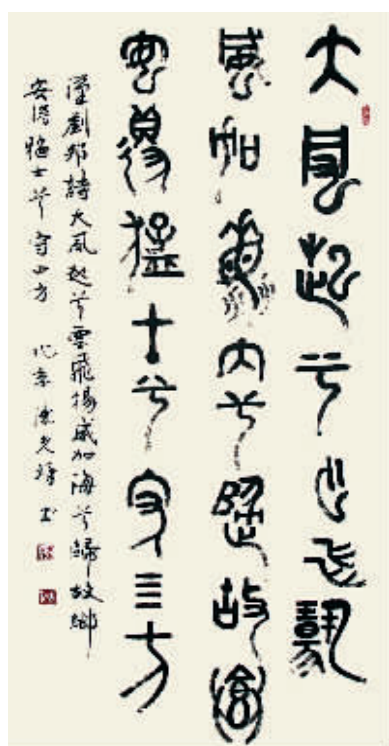 大風起兮雲飛揚
威加海內兮歸故鄉
安得猛士兮守四方
漢劉邦詩大風起兮雲飛揚威加海兮歸故鄉
安得猛士兮守四方 書